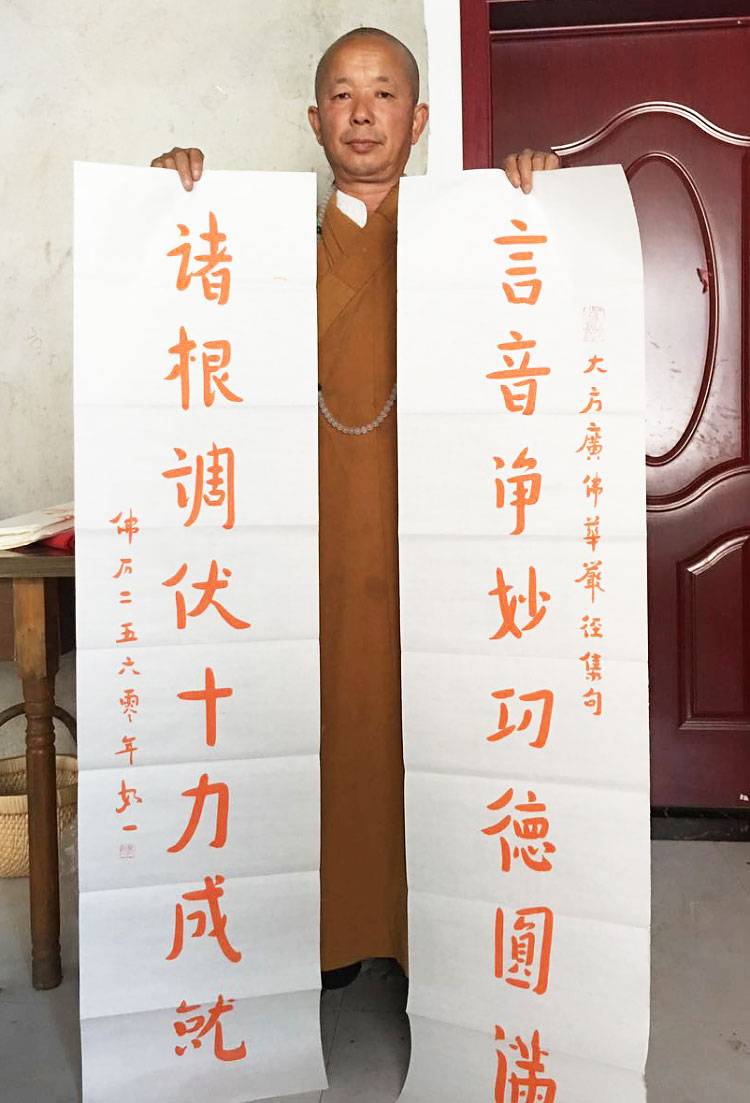 大方廣佛華嚴经集句
言音净妙功德圓满
诸根调伏十力成就
佛历二五六零年如一